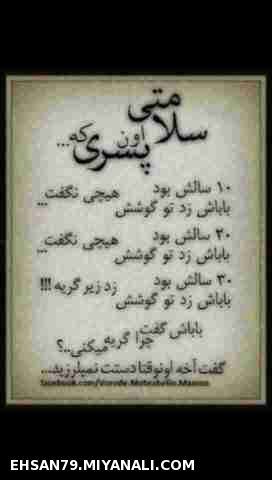 سلامتی
اون پسری که...
۱۰ سالش بود
باباش زد تو گوشش هیچی نگفت...
۲۰ سالش بود
باباش زد تو گوشش هیچی نگفت...
۳۰ سالش بود
باباش زد تو گوشش زد زیر گریه !!!
باباش گفت
چرا گریه میکنی..؟
گفت آخه اونوقتا دستت نمیلرزید...
EHSAN79.MIYANALI.COM